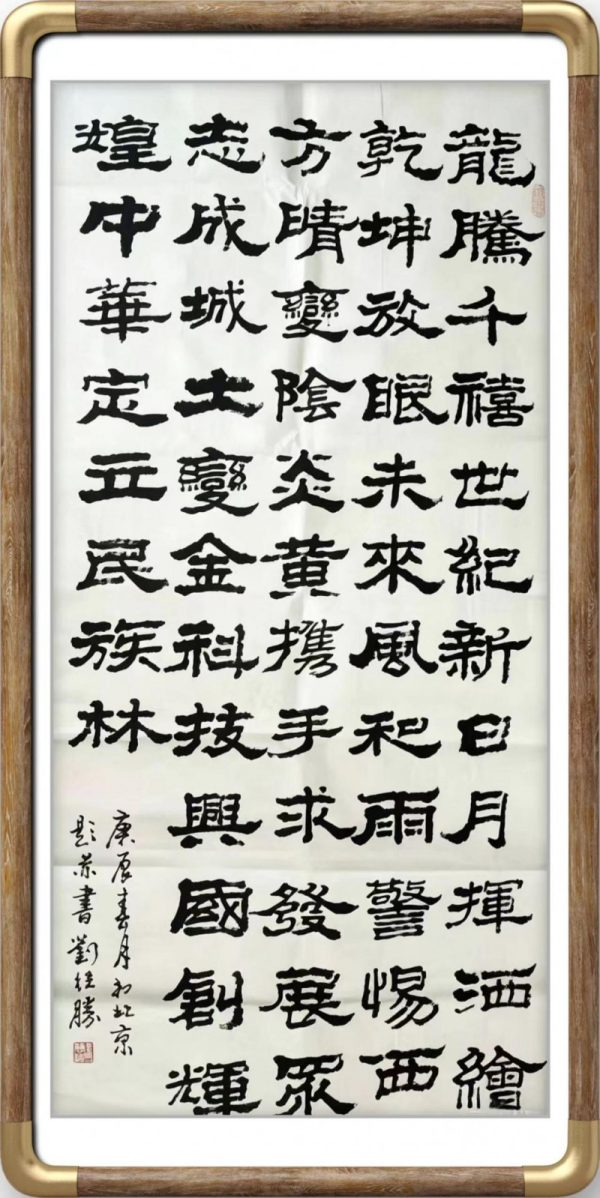 龍騰千禧世紀新日月揮洒繪
乾坤放眼未來風和雨警惕西
方晴變陰炎黄携手求發展眾
志成城土變金科技興國創輝
煌中華定立民族林
庚辰春月初北京
題并書劉佳勝